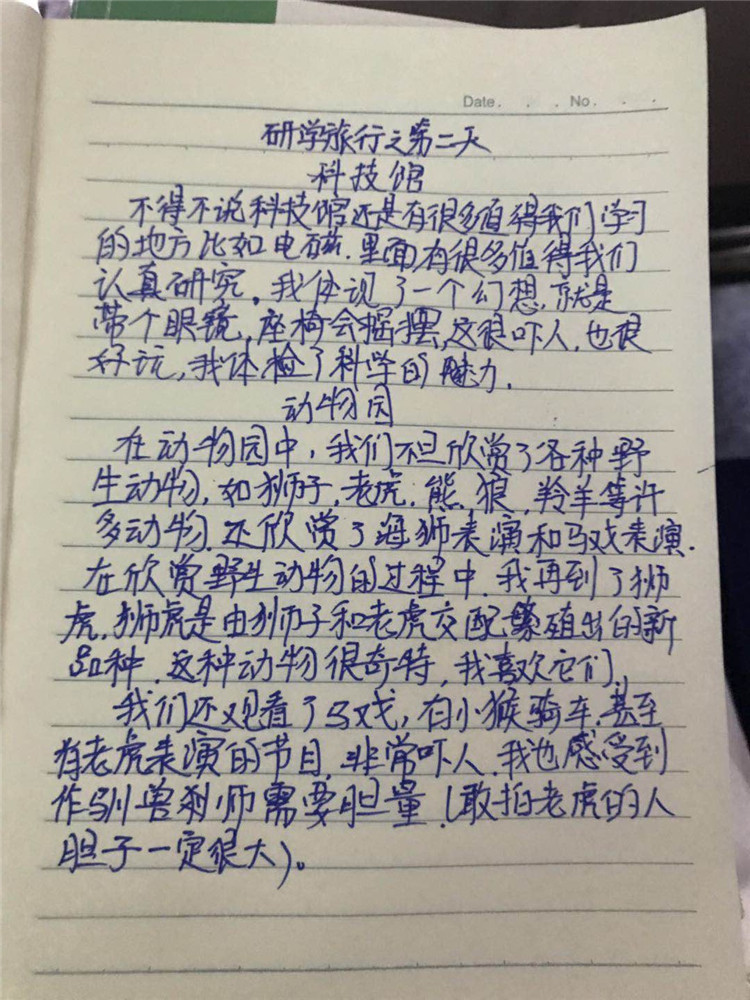 Date. . . No. . .
研学旅行之第二天
科技馆
不得不说科技馆还是有很多值得我们学习
的地方比如电磁.里面有很多值得我们
认真研究,我体现了一个幻想,就是
带个眼镜,座椅会摇摆,这很吓人,也很
好玩,我体检了科学的魅力.
动物园
在动物园中,我们不但欣赏了各种野
生动物,如狮子,老虎,熊,狼,羚羊等许
多动物.还欣赏了海狮表演和马戏表演.
在欣赏野生动物的过程中.我再到了狮
虎,狮虎是由狮子和老虎交配繁殖出的新
品种.这种动物很奇特,我喜欢它们,
我们还观看了马戏,有小猴骑车.甚至
有老虎表演的节目,非常吓人.我也感受到
作驯兽师需要胆量.(敢拍老虎的人
胆子一定很大)。